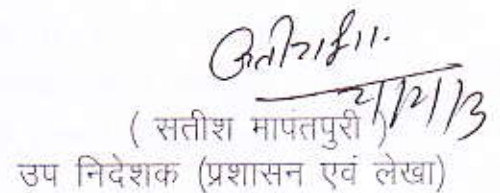 ( सतीश मापतपुरी )
उप निदेशक (प्रशासन एवं लेखा)